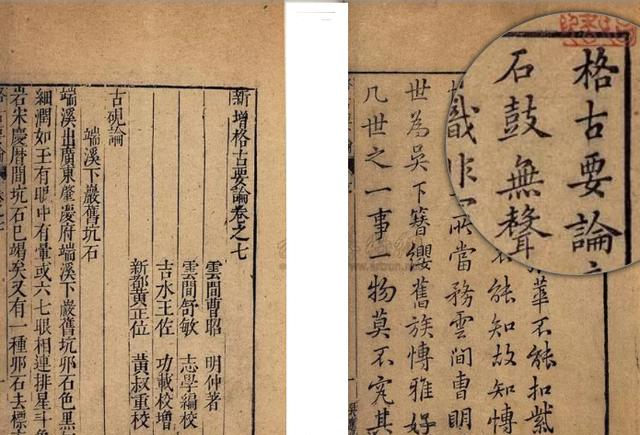 格古要論
石鼓無聲
華不能扣紫
能知故知博
所當務雲間曹明
世為吳下簪纓舊族博雅好
几世之一事一物莫不究其
新增格古要論卷之七
雲間曹昭 明仲著
雲間舒敏 志學編校
吉水王佐 功載校增
新都黃正位 黃叔重校
古硯論
端溪下巖舊坑石
端溪出廣東肇慶府端溪下巖舊坑卵石色黑
細潤如玉有眼中有暈或六七眼相連排星斗
岩宋慶曆間坑石已竭矣又有一種卵石去標